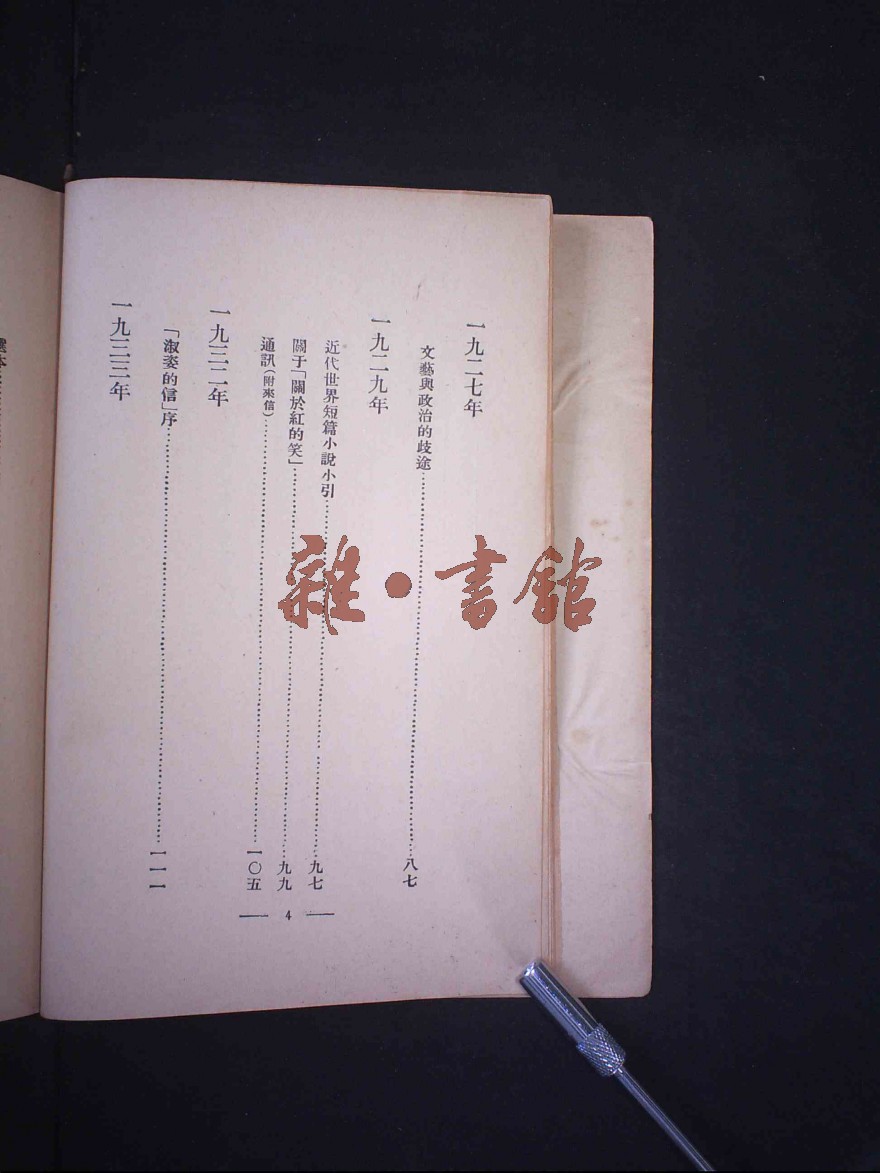 一九二七年
文藝與政治的歧途……八七
一九二九年
近代世界短篇小說小引……九七
關于「關於紅的笑」……九九
通訊(附來信)……一〇五
一九三二年
「淑姿的信」序……一一一
一九三三年
— 4 —
雜·書館